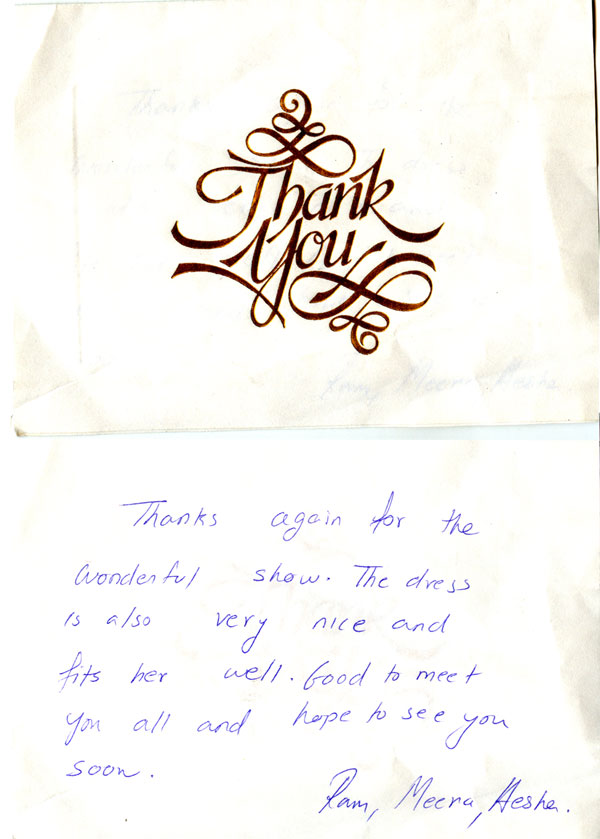 Thank
You
Thanks again for the
wonderful show. The dress
is also very nice and
fits her well. Good to meet
you all and hope to see you
soon.
Ram, Meena, Aesha.